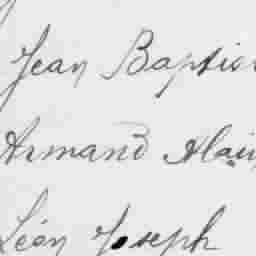 Jean Baptis
Armand Alai
Léon Joseph